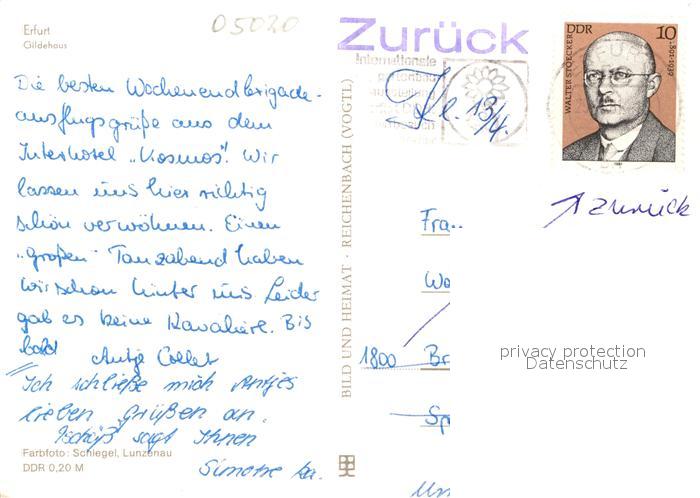 Erfurt
Gildehaus
05020
Zurück
Internationale
DDR 10
WALTER STOECKER
1891-1939
Die besten Wochenendbrigade-
ausflugsgrüße aus dem
Interhotel „Kosmos". Wir
lassen uns hier richtig
schön verwöhnen. Einen
„großen" Tanzabend haben
wir schon hinter uns Leider
gab es keine Kavaliere. Bis
bald Antje Collet
Ich schließe mich Antjes
lieben Grüßen an.
Tschüß sagt Ihnen
Simone
Farbfoto: Schlegel, Lunzenau
DDR 0,20 M
BILD UND HEIMAT · REICHENBACH (VOGTL)
13/4.
zurück
Fra
Wa
1800 Br
Sp
privacy protection
Datenschutz